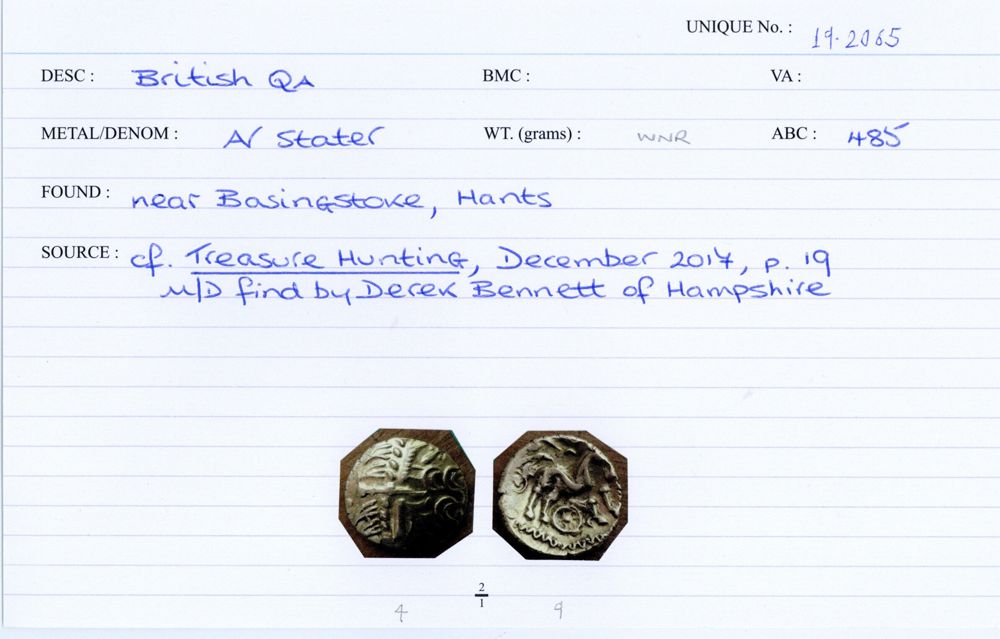 UNIQUE No. : 19.2065
DESC : British QA BMC : VA :
METAL/DENOM : AV Stater WT. (grams) : WNR ABC : 485
FOUND : near Basingstoke, Hants
SOURCE : cf. Treasure Hunting, December 2017, p. 19
M/D find by Derek Bennett of Hampshire
2
1
4 9